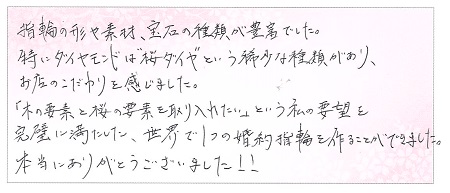 指輪の形や素材、宝石の種類が豊富でした。
特にダイヤモンドは"桜ダイヤ"という稀少な種類があり、
お店のこだわりを感じました。
「木の要素と桜の要素を取り入れたい」という私の要望を
完璧に満たした、世界で1つの婚約指輪を作ることができました。
本当にありがとうございました!!